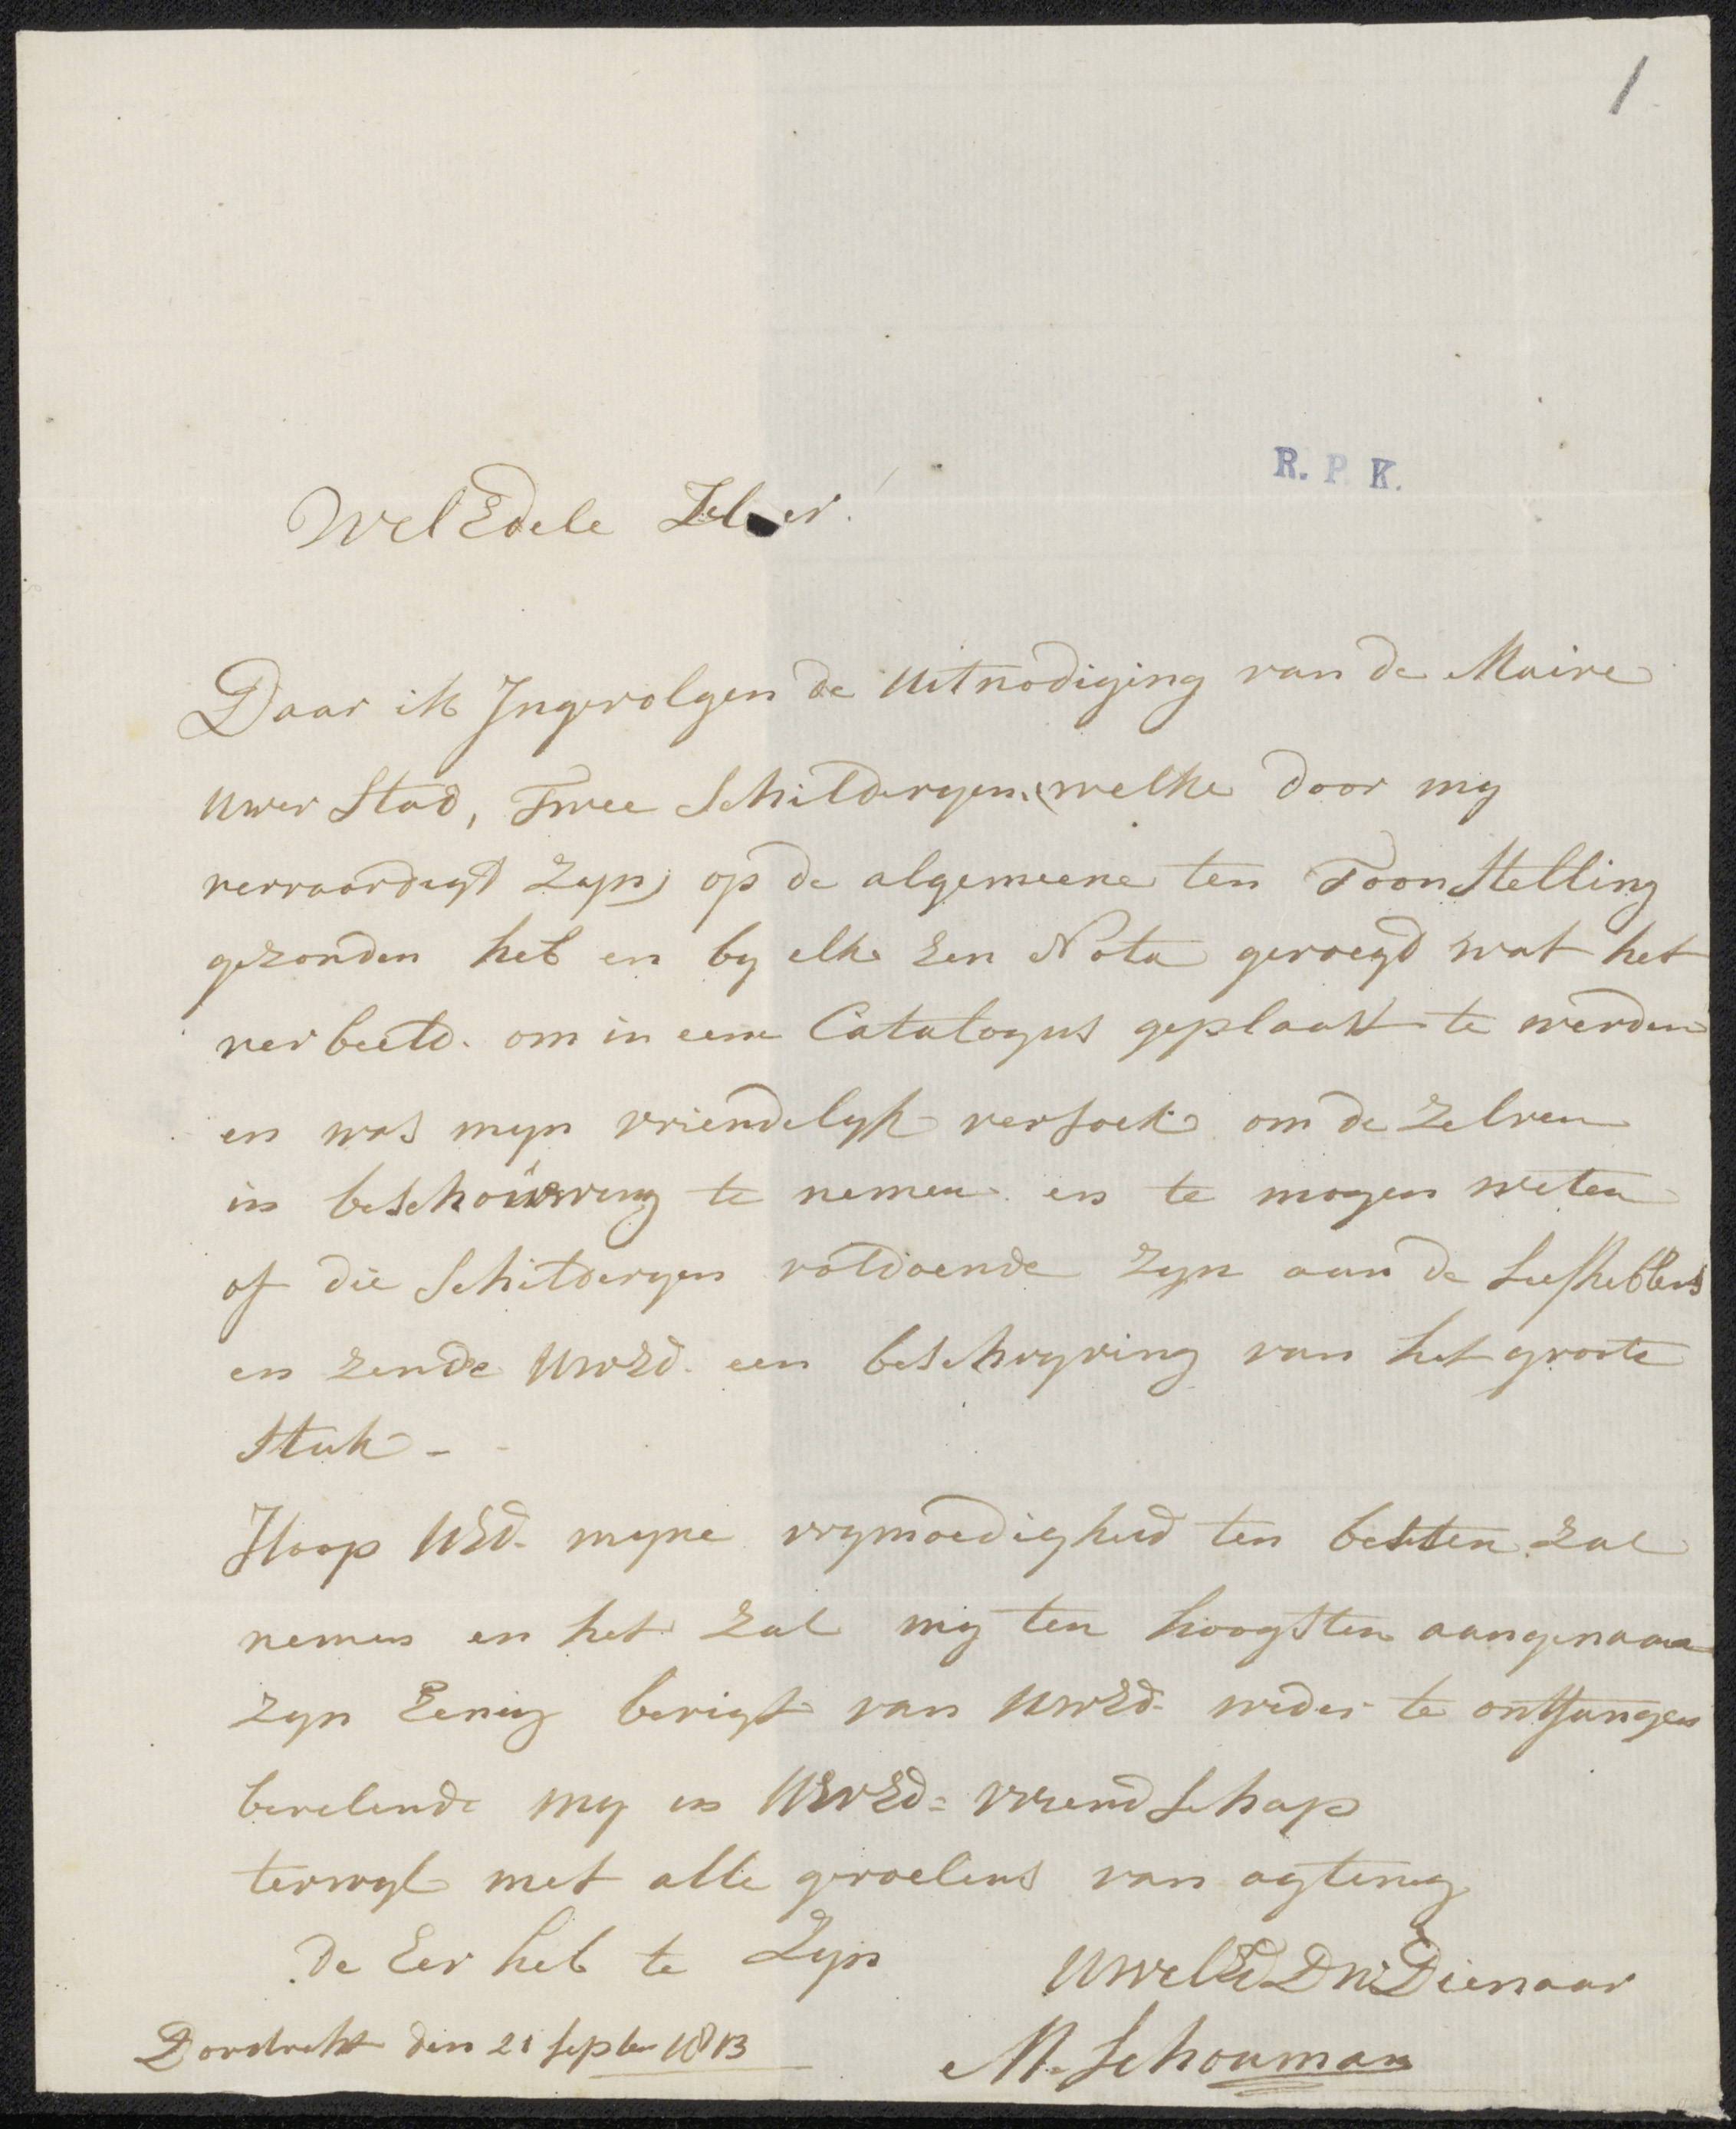 1
R. P. K.
WelEdele Heer!
Daar ik Ingevolgen de uitnodiging van de Maire
uwer Stad, Twee Schilderyen (welke door my
vervaardigd zyn) op de algemeene ten Toon Stelling
gezonden heb en by elke een Nota gevoegd wat het
verbeeld. om in eene Catalogus geplaast te werden
en was myn vriendelyk versoek om de zelven
in beschouwing te nemen en te mogen weten
of die Schilderyen voldoende zyn aan de Liefhebbers
en zende UwEd. een beschryving van het groote
Stuk -
Hoop UEd. myne vrymoedigheid ten besten zal
nemen en het zal my ten hoogsten aangenaam
zyn Eenig berigt van UwEd. weder te ontfangen
bevelende my in UwEd= vriendschap
terwyl met alle gevoelens van agting
de Eer heb te Zyn
UwelEd Dw Dienaar
Dordrecht den 21 Septber 1813
M. Schouman